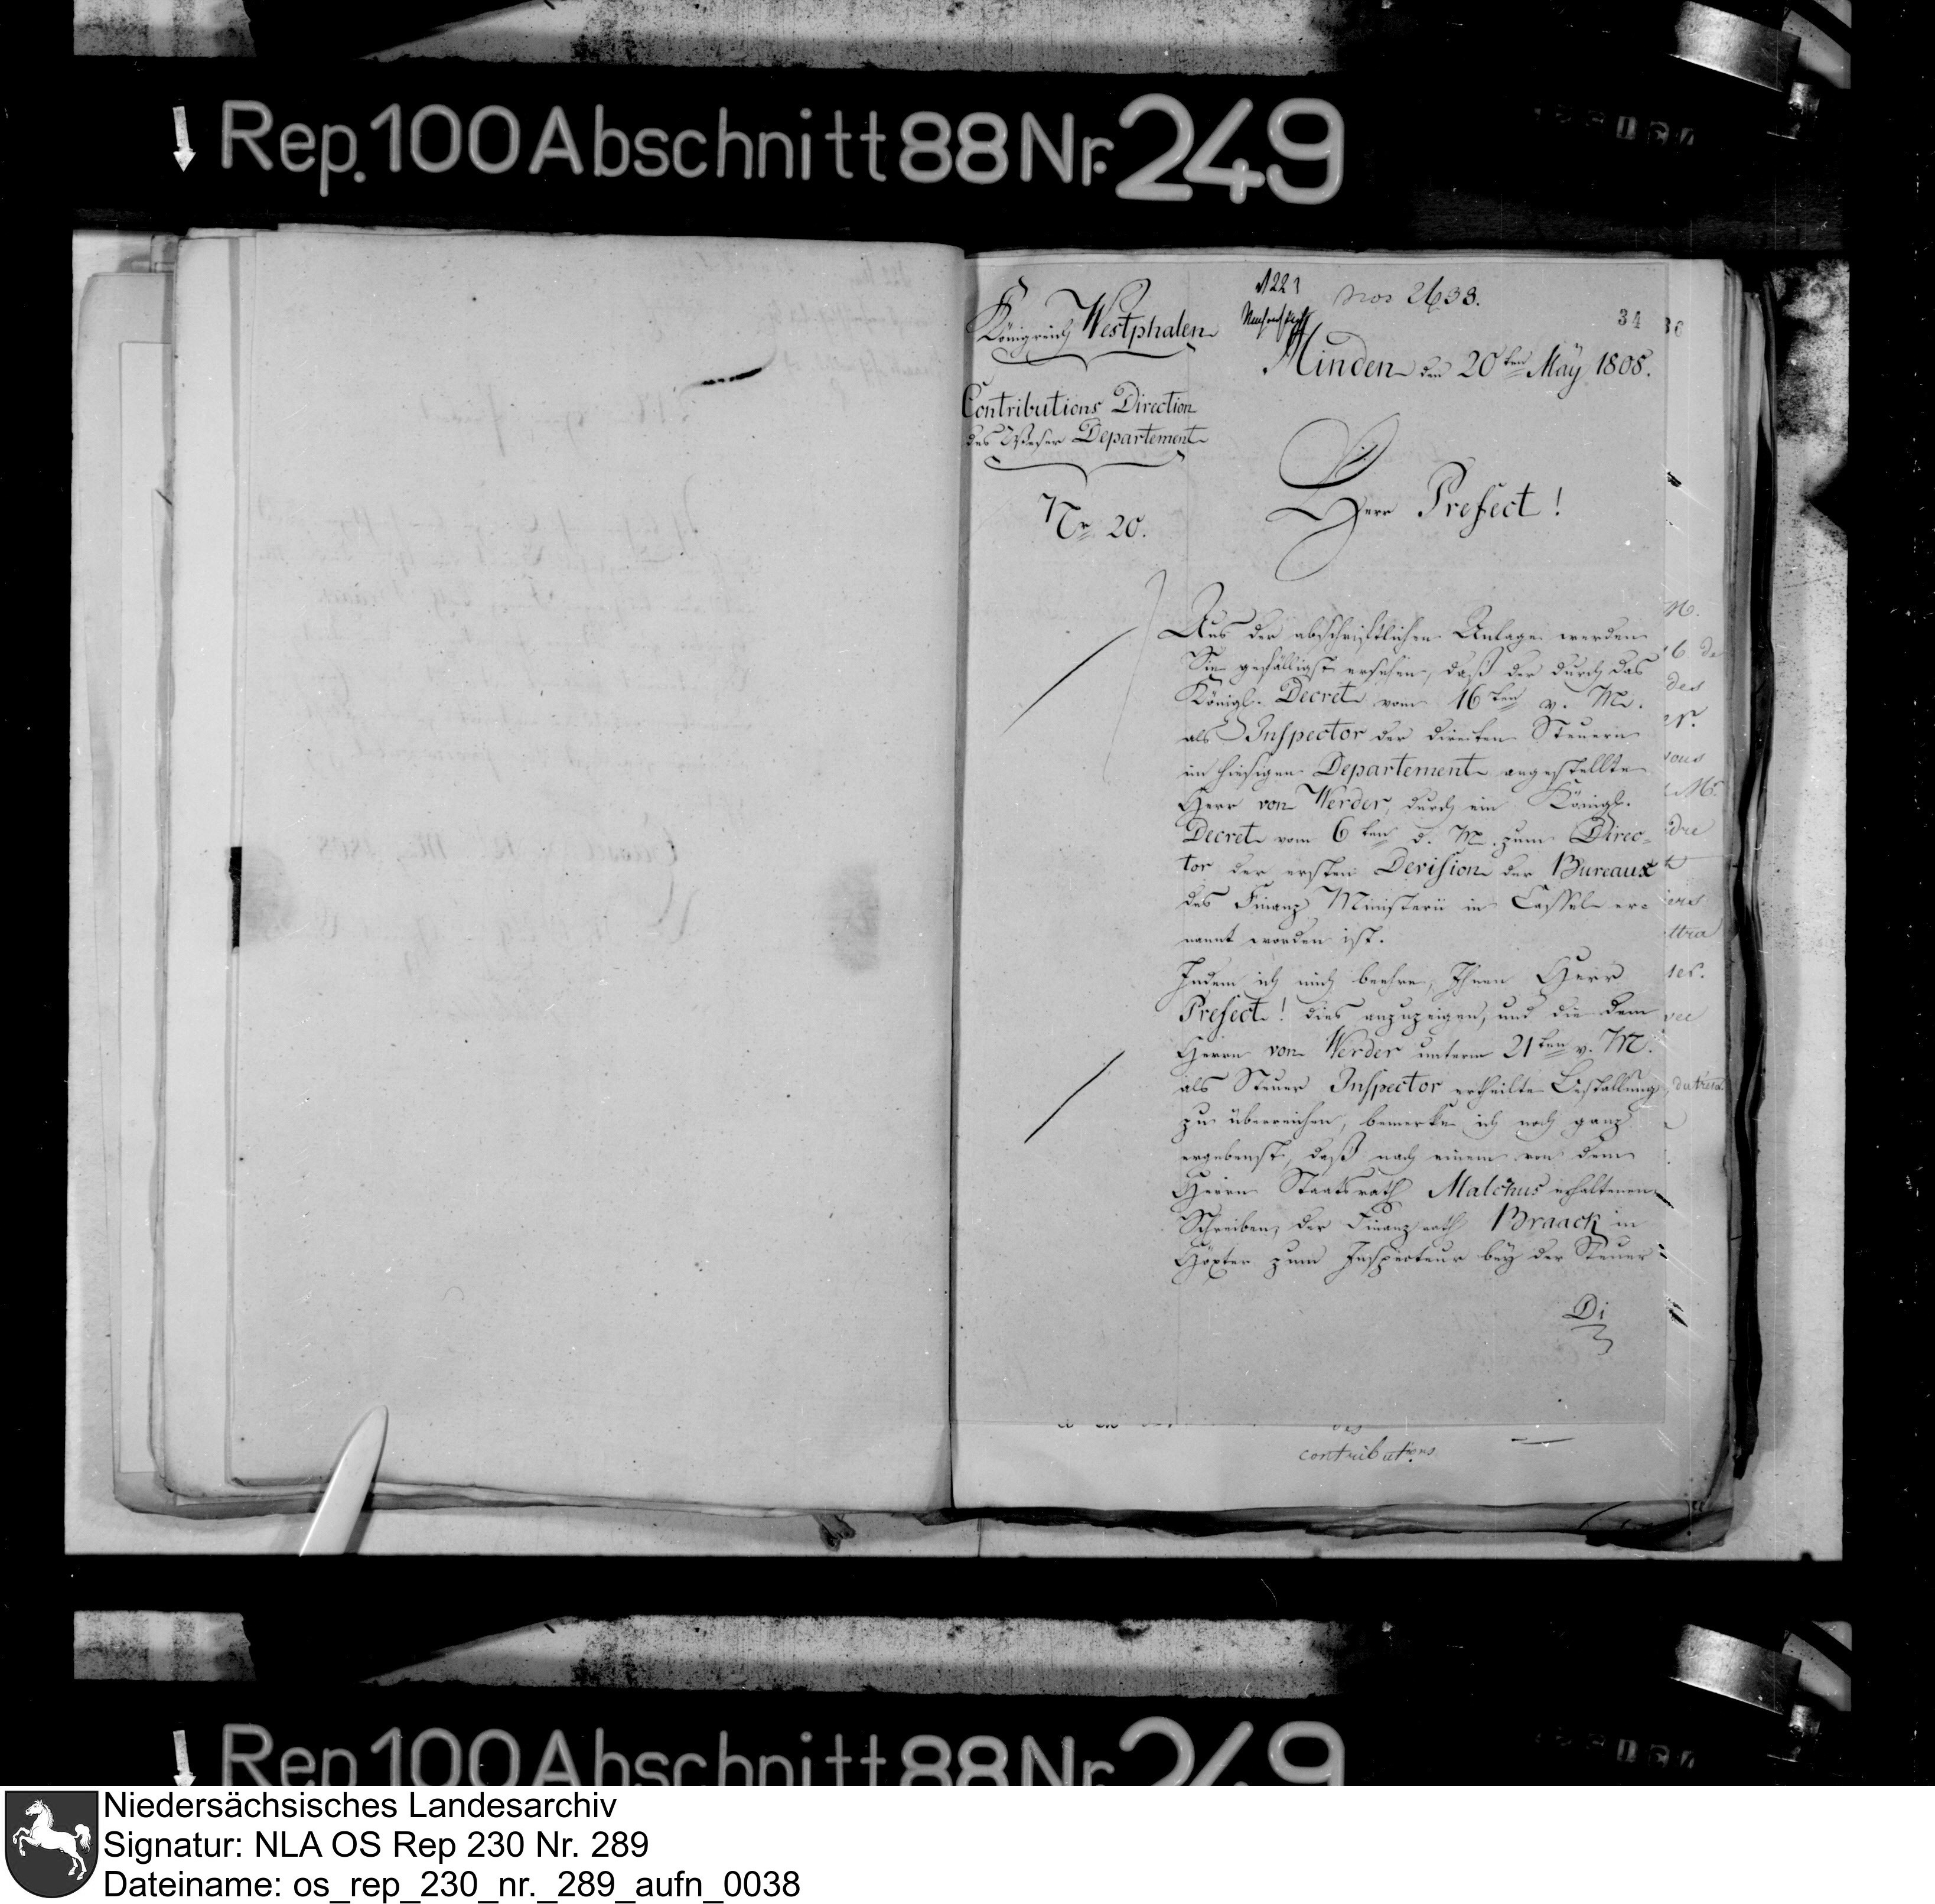 Rep. 100 Abschnitt 88 Nr. 249
Königreich Westphalen
Contributions Direction
des Weser Departement
Nr 20.
1221
Nro 2633.
34
Minden den 20ten May 1808.
Herr Prefect!
Aus der abschriftlichen Anlage werden
Sie gefälligst ersehen, daß der durch das
Königl. Decret vom 16ten v. M.
als Inspector der direkten Steuern
im hiesigen Departement angestellte
Herr von Werder, durch ein Königl.
Decret vom 6ten d. M. zum Direc-
tor der ersten Devision der Bureaux
des Finanz Ministerii in Cassel er-
nannt worden ist.
Indem ich mich beehre, Ihnen Herr
Prefect! dies anzuzeigen, und die dem
Herrn von Werder unterm 21ten v. M.
als Steuer Inspector ertheilte Bestallung
zu überreichen, bemerke ich noch ganz
ergebenst, daß nach einem von dem
Herrn Staatsrath Malchus erhaltenen
Schreiben, der Finanzrath Braack in
Höxter zum Inspecteur bey der Steuer
Di
contributions
Rep. 100 Abschnitt 88 Nr. 249
Niedersächsisches Landesarchiv
Signatur: NLA OS Rep 230 Nr. 289
Dateiname: os_rep_230_nr._289_aufn_0038